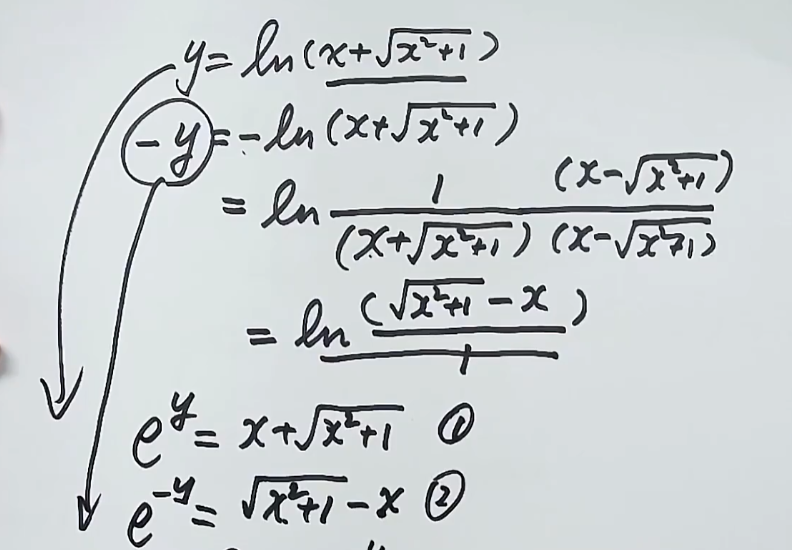 y = ln(x+√(x²+1))
-y = -ln(x+√(x²+1))
= ln 1 (x-√(x²+1)) / (x+√(x²+1)) (x-√(x²+1))
= ln (√(x²+1) - x) / 1
e^y = x+√(x²+1) ①
e^-y = √(x²+1) - x ②